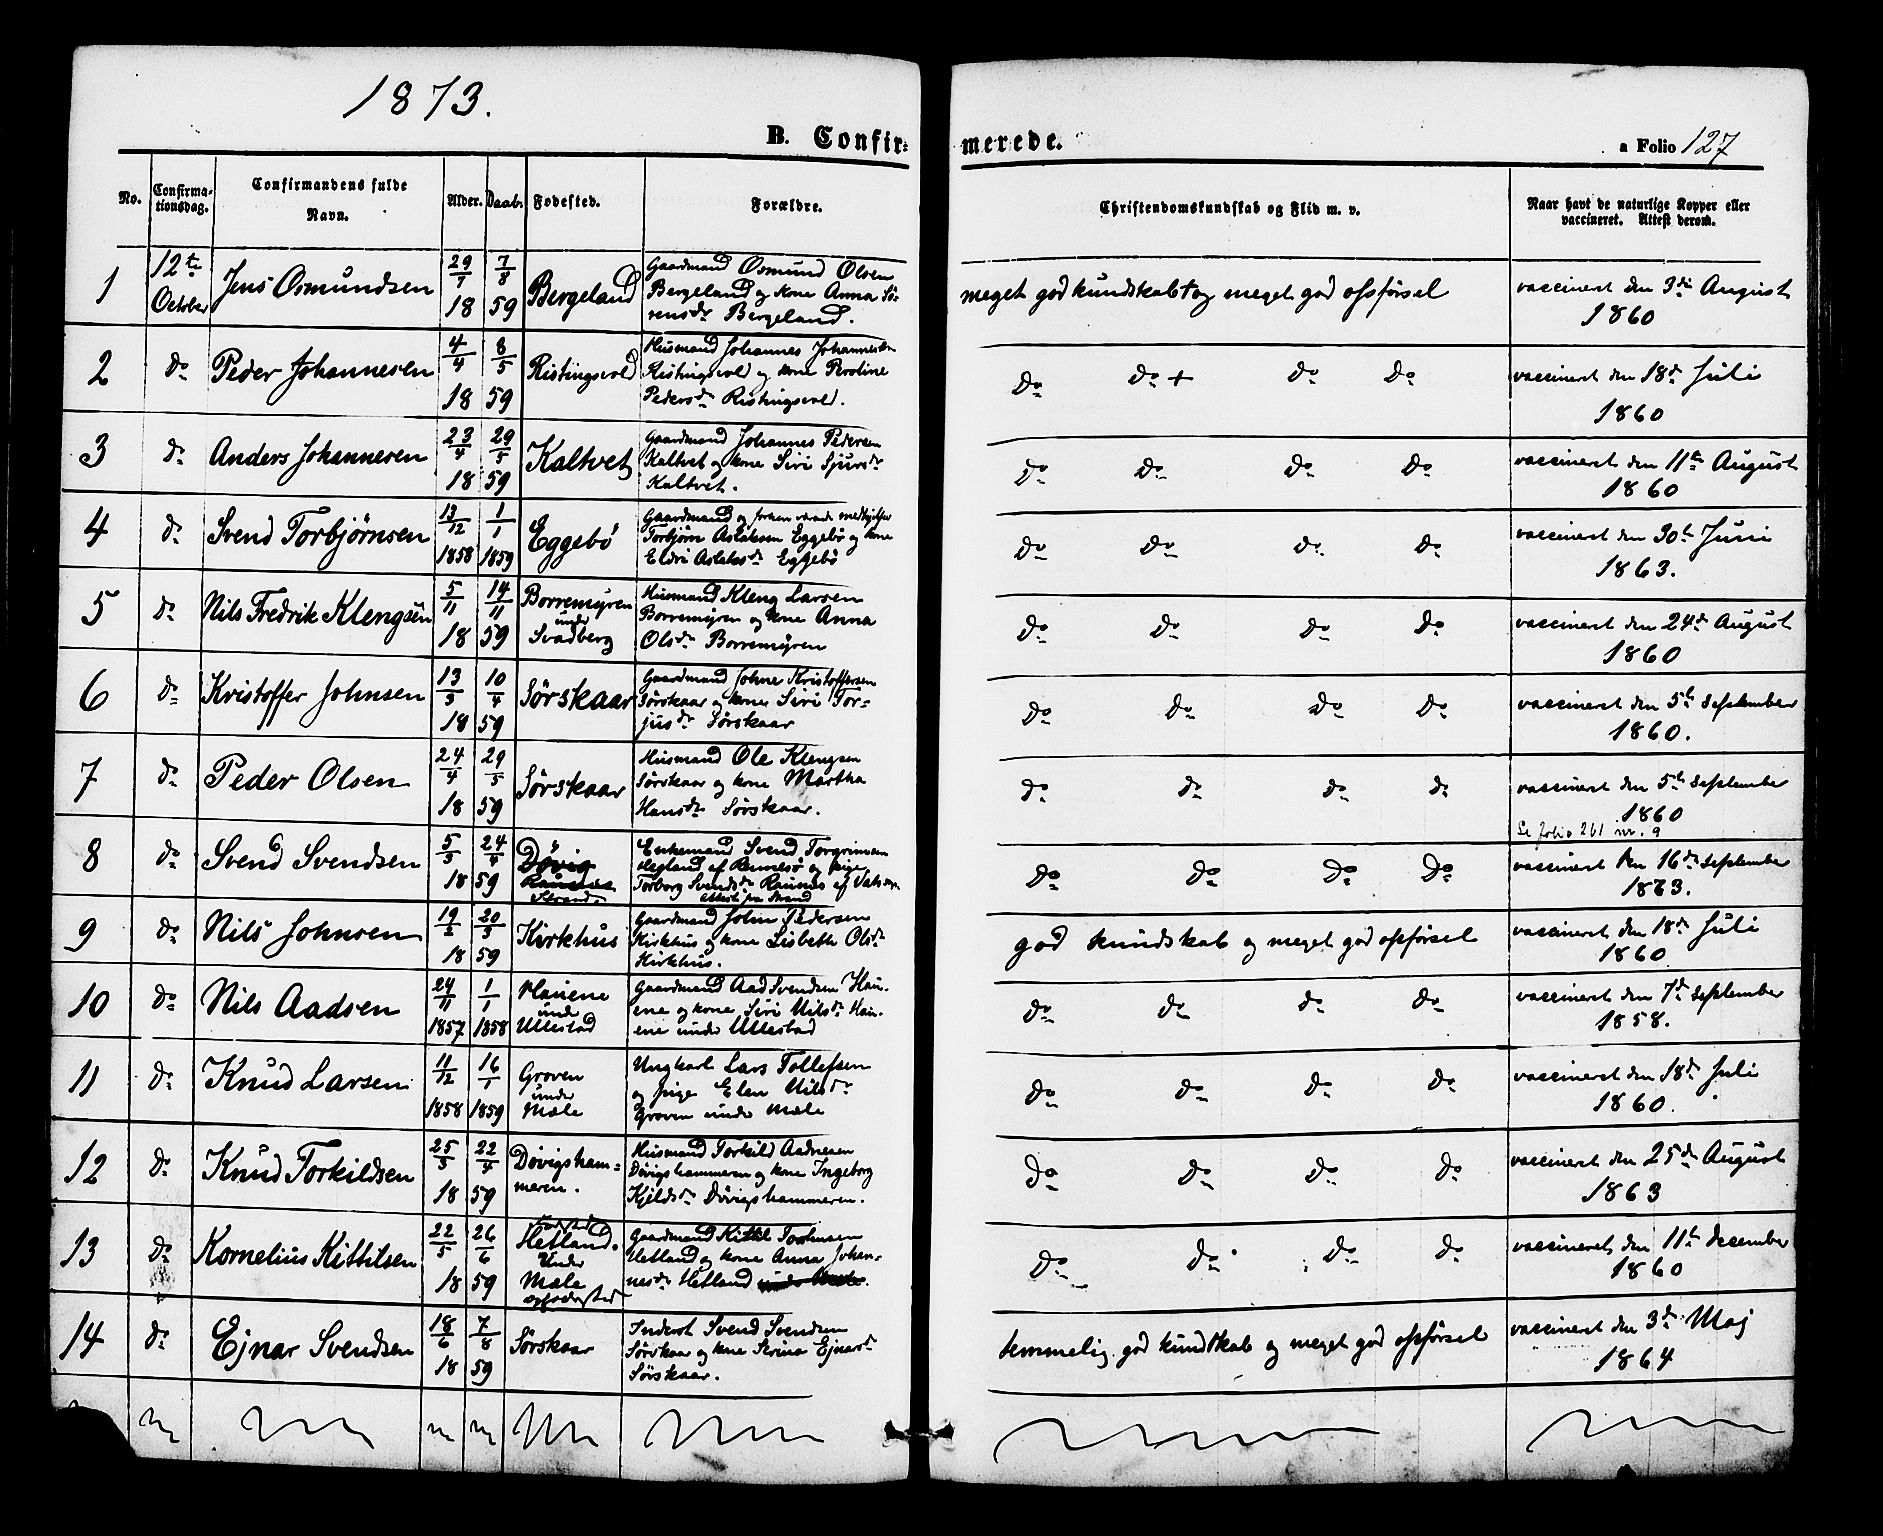 1873.
B. Confir-
merede.
a Folio 127
No.
Confirma-
tionsdag.
Confirmandens fulde
Navn.
Alder.
Daab.
Fødested.
Forældre.
Christendomskundskab og Flid m. v.
Naar havt de naturlige Kopper eller
vaccineret. Attest derom.
1
12te
October
Jens Osmundsen
29/7
18
7/8
59
Bergeland
Gaardmand Osmund Olsen
Bergeland og kone Anna Sø-
rensdr Bergeland.
meget god kundskab + og meget god opførsel
vaccineret den 3di August
1860
2
do
Peder Johannesen
4/4
18
8/5
59
Ristingsvold
Husmand Johannes Johannesen
Ristingsvold og kone Peroline
Pedersdr Ristingsvold.
do do + do do
vaccineret den 18de Juli
1860
3
do
Anders Johannesen
23/4
18
29/5
59
Kaltvet
Gaardmand Johannes Pedersen
Kaltvet og kone Siri Sjursdr
Kaltvet.
do do do do
vaccineret den 11te August
1860
4
do
Svend Torbjørnsen
13/12
1858
1/1
1859
Eggebø
Gaardmand og medhjelper
Torbjørn Aslaksen Eggebø og kone
Eldri Aslaksdr Eggebø
do do do do
vaccineret den 30te Juni
1863.
5
do
Nils Fredrik Klengsen
5/11
18
14/11
59
Borremyren
under
Svadberg
Husmand Kleng Larsen
Borremyren og kone Anna
Olsdr Borremyren
do do do do
vaccineret den 24de August
1860
6
do
Kristoffer Johnsen
13/3
18
10/4
59
Sørskaar
Gaardmand Johne Kristoffersen
Sørskaar og kone Siri Tor-
jusdr Sørskaar
do do do do
vaccineret den 5te September
1860.
7
do
Peder Olsen
24/4
18
29/5
59
Sørskaar
Husmand Ole Klengsen
Sørskaar og kone Martha
Hansdr Sørskaar.
do do do do
vaccineret den 5te September
1860
Se folio 261 nr. 9
8
do
Svend Svendsen
5/3
18
24/4
59
Døvig
Raunes
Strand.
Enkemand Svend Torgrimsen
Hegland af Rennesø og pige
Torborg Svendsdr Raunes af
Attest fra Strand
do do do do
vaccineret den 16de September
1873.
9
do
Nils Johnsen
19/2
18
20/3
59
Kirkhus
Gaardmand John Pedersen
Kirkhus og kone Lisbeth Olsdr
Kirkhus.
god kundskab og meget god opførsel
vaccineret den 18de Juli
1860
10
do
Nils Aadsen
24/11
1857
1/1
1858
Hauene
under
Ullestad
Gaardmand Aad Svendsen Hau-
ene og kone Siri Nilsdr Hau-
ene under Ullestad
do do do do
vaccineret den 7de September
1858.
11
do
Knud Larsen
11/12
1858
16/1
1859
Groven
under
Mæle
Ungkarl Lars Tollefsen
og pige Elen Nilsdr
Groven under Mæle
do do do do
vaccineret den 18de Juli
1860.
12
do
Knud Torkildsen
25/3
18
22/4
59
Døvigsham-
meren.
Husmand Torkild Aadnesen
Døvigshammeren og kone Ingeborg
Kjeldsdr Døvigshammeren.
do do do do
vaccineret den 25de August
1863
13
do
Kornelius Kittilsen
22/5
18
26/6
59
Hetland.
Under
Mæle
opfødested
Gaardmand Kittil Tostensen
Hetland og kone Anna Johan-
nesdr Hetland under Mæle.
do do do do
vaccineret den 11te December
1860
14
do
Ejnar Svendsen
18/6
18
7/8
59
Sørskaar
Inderst Svend Svendsen
Sørskaar og kone Serina Ejnarsdr
Sørskaar.
temmelig god kundskab og meget god opførsel
vaccineret den 3de Maj
1864